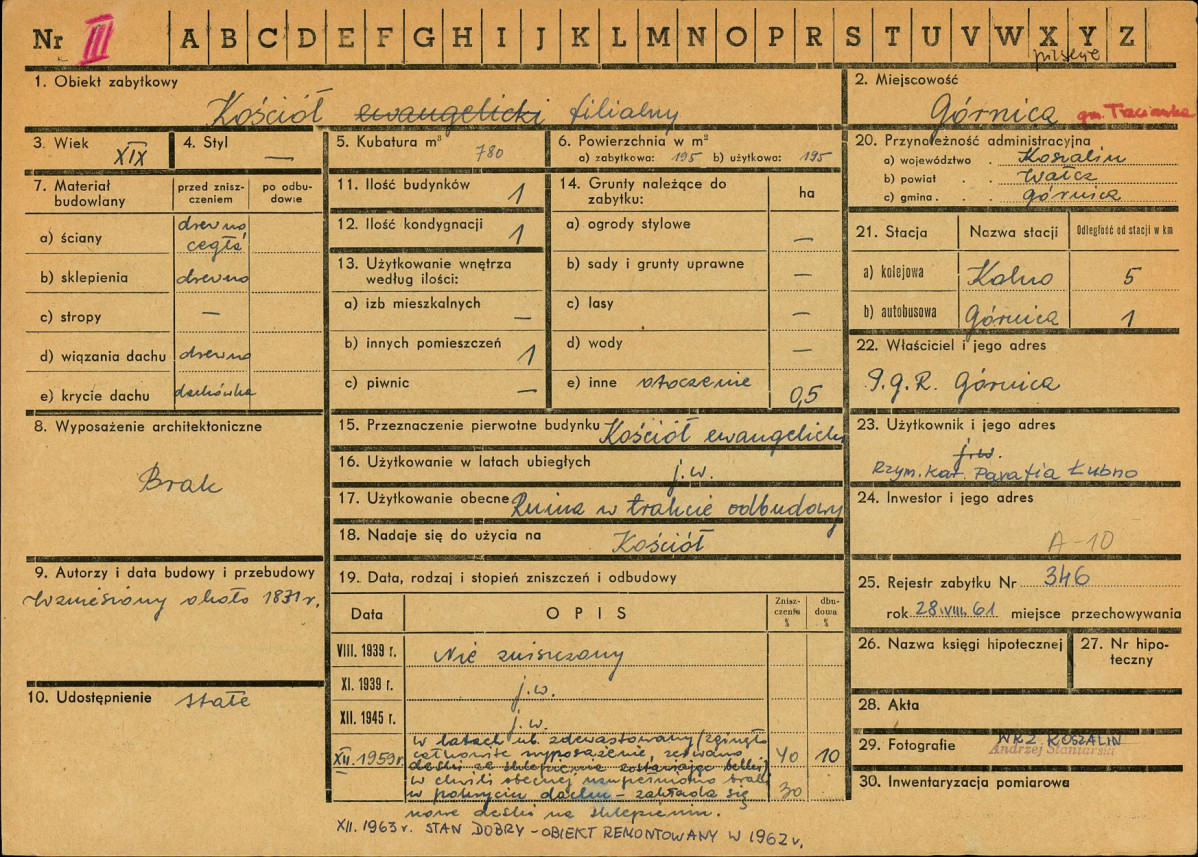 Nr III A B C D E F G H I J K L M N O P R S T U V W X Y Z
pilskie
1. Obiekt zabytkowy
Kościół ewangelicki filialny
2. Miejscowość
Górnica gm. Trzcianka
3. Wiek XIX
4. Styl —
5. Kubatura m³ 780
6. Powierzchnia w m²
a) zabytkowa: 195 b) użytkowa: 195
20. Przynależność administracyjna
a) województwo . Koszalin
b) powiat . . Wałcz
c) gmina . . Górnica
7. Materiał budowlany
przed zniszczeniem
po odbudowie
a) ściany drewno cegła
b) sklepienia drewno
c) stropy —
d) wiązania dachu drewno
e) krycie dachu dachówka
11. Ilość budynków 1
12. Ilość kondygnacji 1
13. Użytkowanie wnętrza według ilości:
a) izb mieszkalnych —
b) innych pomieszczeń 1
c) piwnic —
14. Grunty należące do zabytku: ha
a) ogrody stylowe —
b) sady i grunty uprawne —
c) lasy —
d) wody —
e) inne otoczenie 0,5
21. Stacja Nazwa stacji Odległość od stacji w km
a) kolejowa 5
b) autobusowa Górnica 1
22. Właściciel i jego adres
P.g.R. Górnica
8. Wyposażenie architektoniczne
Brak
15. Przeznaczenie pierwotne budynku Kościół ewangelicki
16. Użytkowanie w latach ubiegłych j.w.
17. Użytkowanie obecne Ruina w trakcie odbudowy
18. Nadaje się do użycia na Kościół
23. Użytkownik i jego adres
j.w.
Rzym. kat. Parafia Łubno
24. Inwestor i jego adres
A-10
9. Autorzy i data budowy i przebudowy
Wzniesiony około 1831 r.
10. Udostępnienie stałe
19. Data, rodzaj i stopień zniszczeń i odbudowy
Data OPIS Zniszczenia % dbudowa %
VIII. 1939 r. Nie zniszczony
XI. 1939 r. j.w.
XII. 1945 r. j.w.
XII. 1959 r. w latach ub. zdewastowany/zginęło
całkowite wyposażenie, zerwano 40 10
deski ze sklepienia zostawiając belki/
w chwili obecnej uzupełniono braki 30
w pokryciu dachu – zakłada się
nowe deski na sklepieniu.
XII. 1963 r. STAN DOBRY – OBIEKT REMONTOWANY W 1962 r.
25. Rejestr zabytku Nr 346
rok 28.VIII.61 miejsce przechowywania
26. Nazwa księgi hipotecznej
27. Nr hipoteczny
28. Akta
29. Fotografie WKZ KOSZALIN
30. Inwentaryzacja pomiarowa